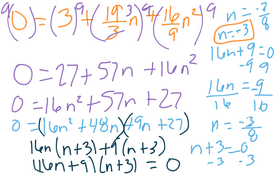 9(0) = (3)9 + (19/3 n)9 + (16/9 n²)9
0 = 27 + 57n + 16n²
0 = 16n² + 57n + 27
0 = (16n² + 48n)(+9n + 27)
16n(n+3) + 9(n+3)
(16n+9)(n+3) = 0
n = -7/8
n = -3
16n + 9 = 0
-9 -9
16n = -9
16 16
n = -3/8
n + 3 = 0
-3 -3